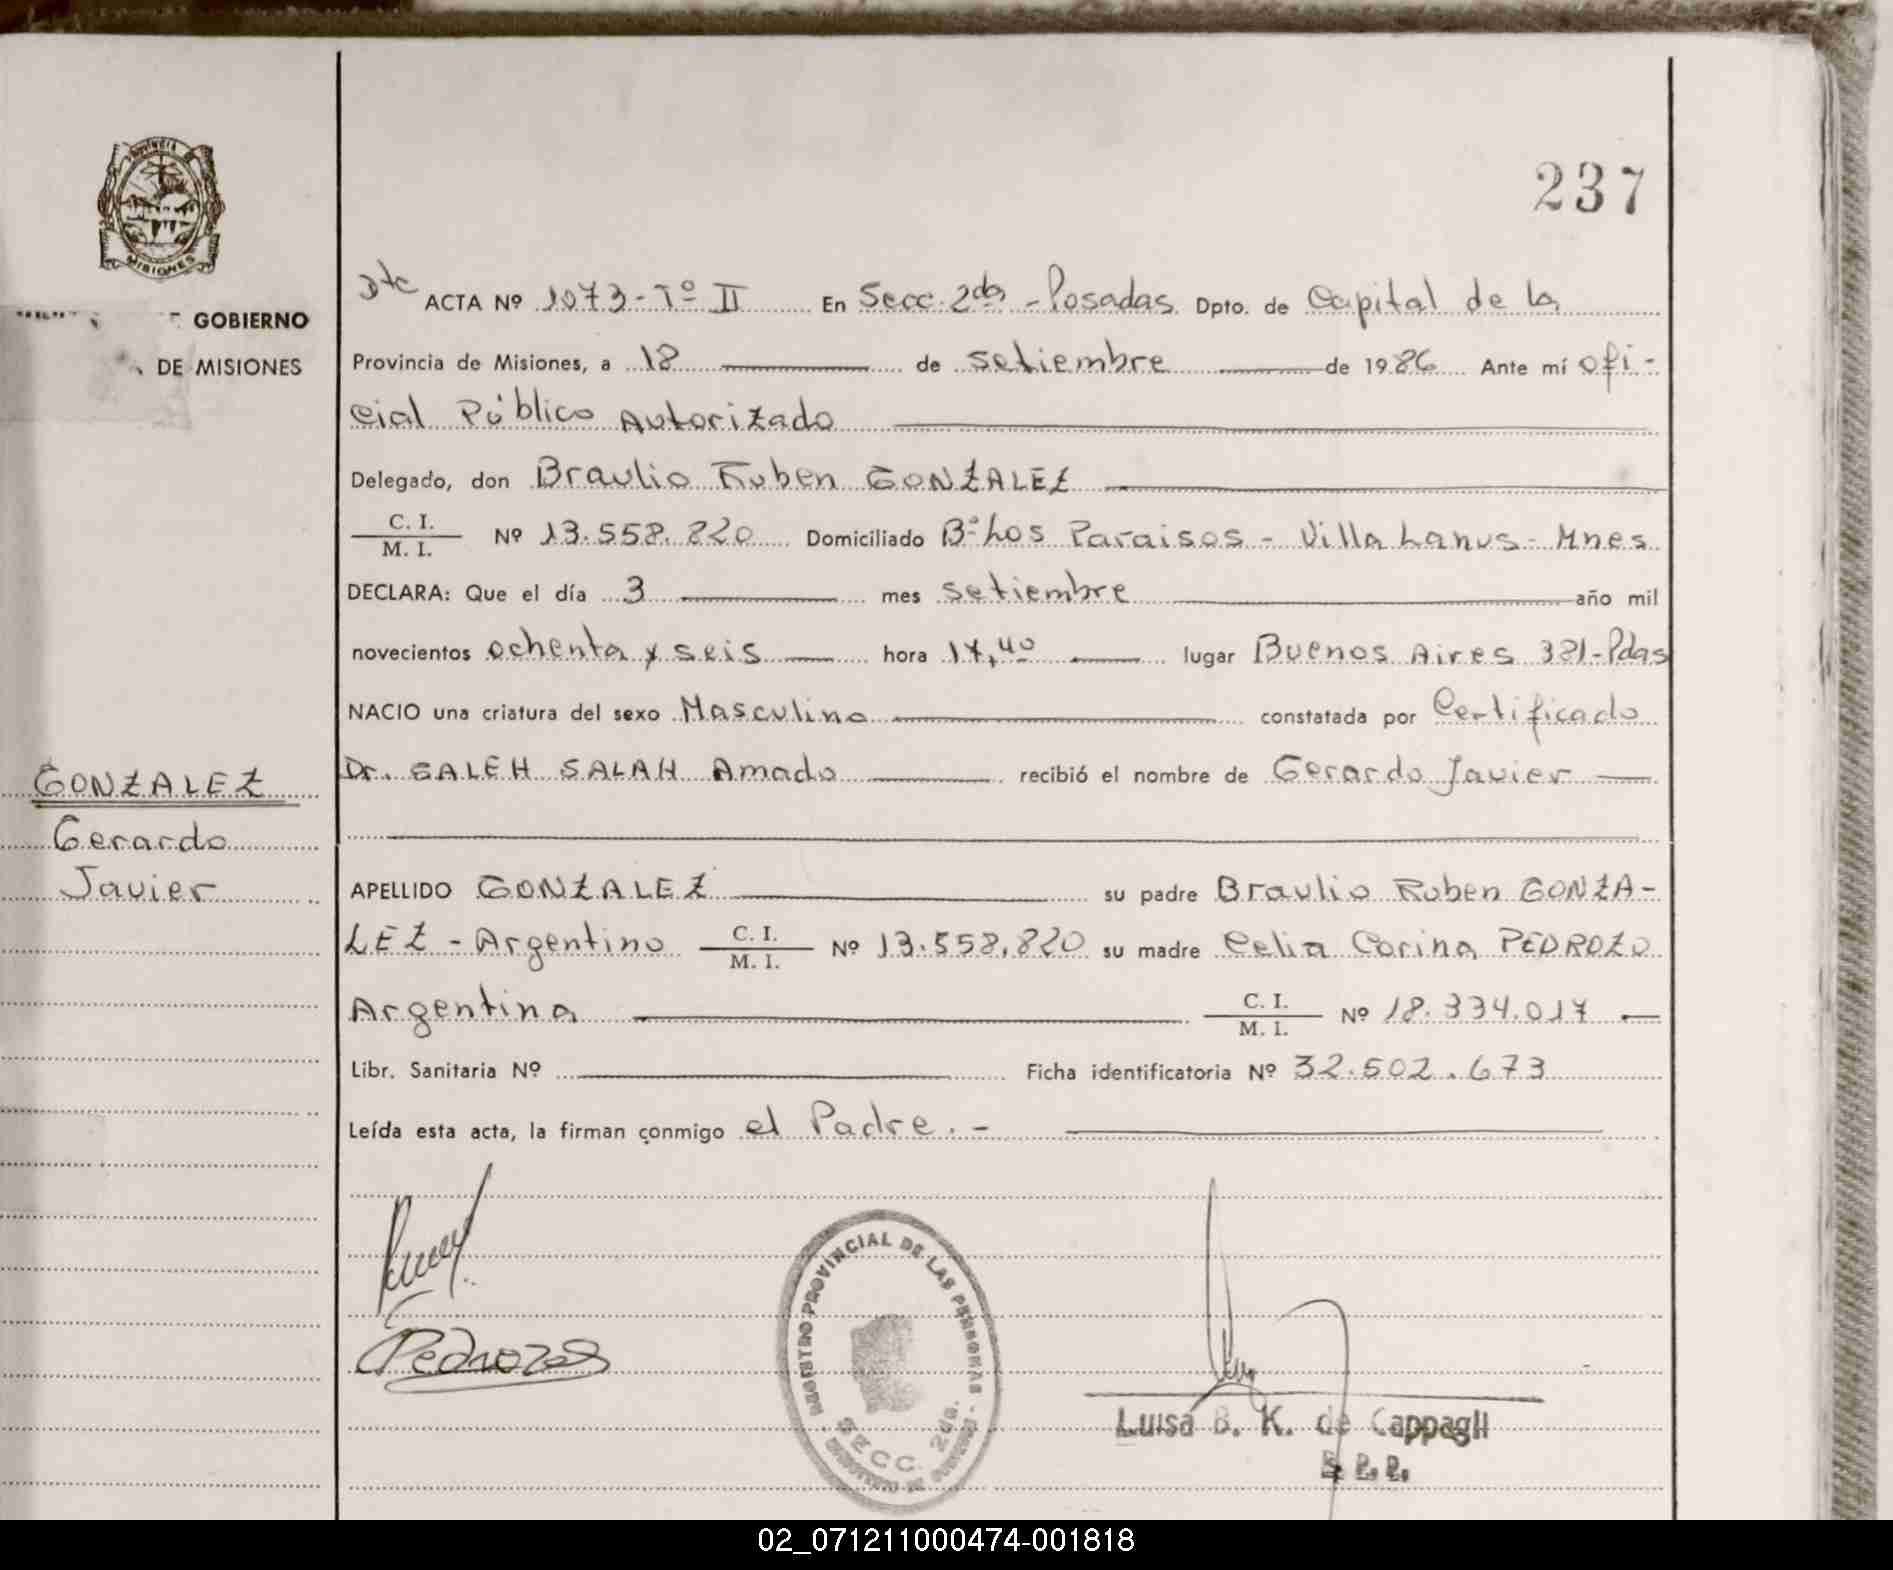 237
PROVINCIA DE
MISIONES
GOBIERNO
DE MISIONES
Dtc ACTA Nº 1073-Tº II En Secc. 2da - Posadas Dpto. de Capital de la
Provincia de Misiones, a 18 de setiembre de 1986 Ante mí ofi-
cial Público Autorizado
Delegado, don Braulio Ruben GONZALEZ
C. I.
M. I. Nº 13.558.820 Domiciliado Bº Los Paraisos - Villa Lanus - Mnes
DECLARA: Que el día 3 mes setiembre año mil
novecientos ochenta y seis hora 17,40 lugar Buenos Aires 381-Pdas
NACIO una criatura del sexo Masculino constatada por Certificado
Dr. SALEH SALAH Amado recibió el nombre de Gerardo Javier
GONZALEZ
Gerardo
Javier
APELLIDO GONZALEZ su padre Braulio Ruben GONZA-
LEZ - Argentino C. I.
M. I. Nº 13.558.820 su madre Celia Corina PEDROZO
Argentina C. I.
M. I. Nº 18.334.017
Libr. Sanitaria Nº Ficha identificatoria Nº 32.502.673
Leída esta acta, la firman conmigo el Padre.-
REGISTRO PROVINCIAL DE LAS PERSONAS
SECC. 2da.
Luisa B. K. de Cappagli
02_071211000474-001818